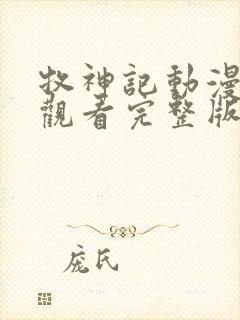 牧神記動漫
觀看完整版
庞氏